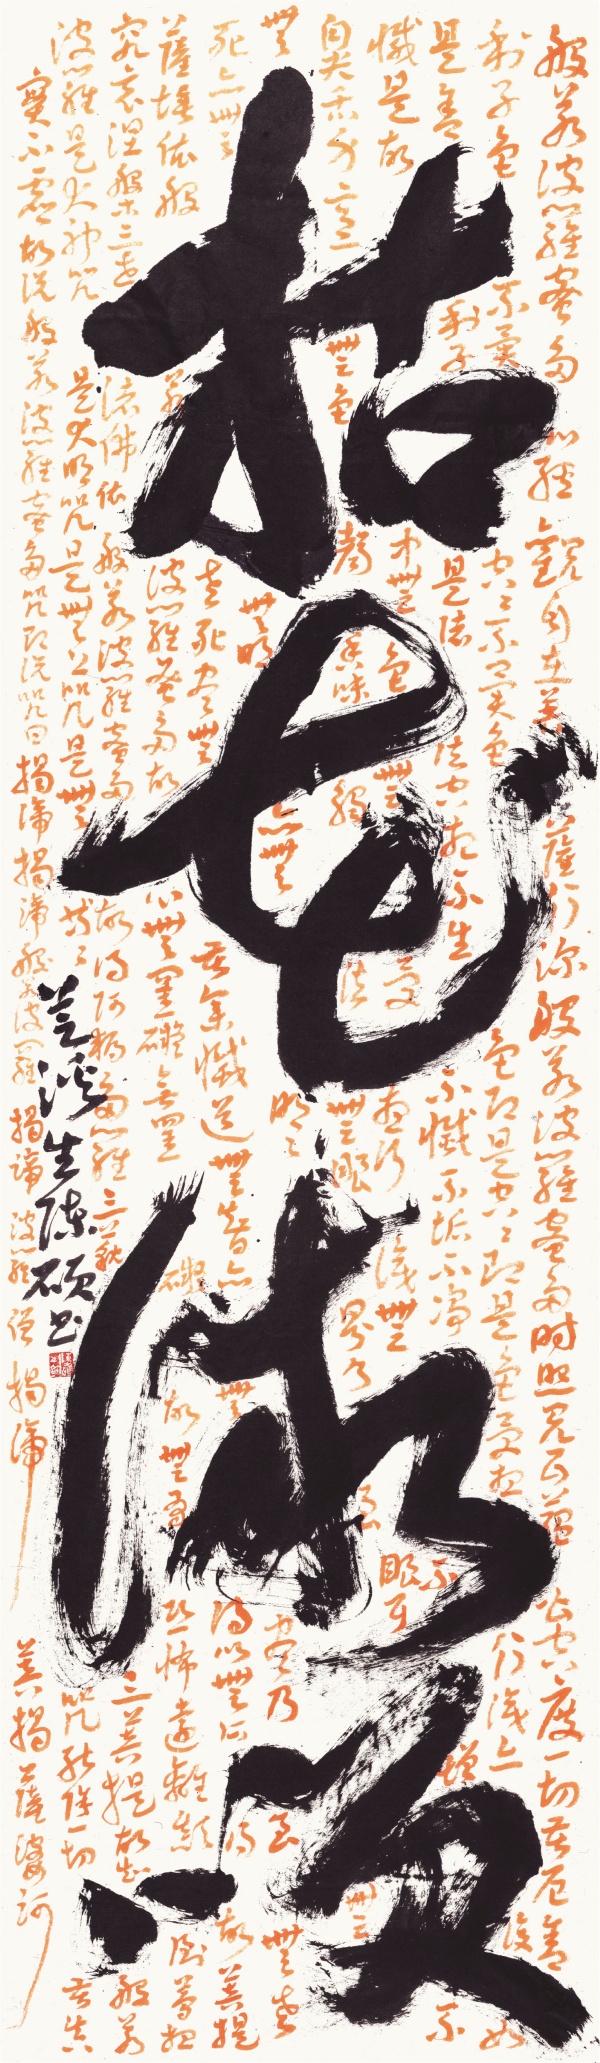 枯
般若波羅蜜多心經觀自在菩薩行深般若波羅蜜多時照見五蘊皆空度一切苦厄舍
利子色不異空空不異色色即是空空即是色受想行識亦復如
是舍利子是諸法空相不生不滅不垢不淨不增不
減是故中無色無受想行識無眼耳
鼻舌身意無色聲香味觸法無眼界乃
無無明亦無明盡乃至無老
死亦無老死盡無苦集滅道無智亦無得以無所得故菩提
薩埵依般若波羅蜜多故心無罣礙無罣礙故無有恐怖遠離顛倒夢想
究竟涅槃三世諸佛依般若波羅蜜多故得阿耨多羅三藐三菩提故知般若
波羅是大神咒是大明咒是無上咒是無等等咒能除一切苦真
實不虛故說般若波羅蜜多咒即說咒曰揭諦揭諦般若波羅揭諦波羅僧揭諦菩提薩婆訶
芝溪生陳碩書